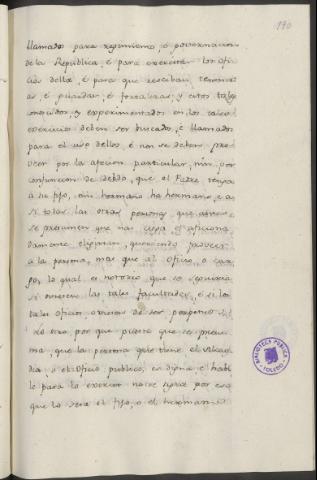 190
llamados para regimiento, é governacion
de la Republica, é para exercitar los ofi
cios della, é para que resciban, tenencias
é guardar, é fortalezas, y estos tales
conocidos, y experimentados en los tales
exercicios deben ser buscados, é llamados
para el uso dellos, é non se deben pro
veer por la aficion particular, nin por
conjuncion de debdo, que el Padre tenga
á su fijo, nin hermano ha hermano, é a
si todas las otras personas, que
se presumen que
damente queriendo proveer
á la persona, mas que al oficio, ó car
go, lo qual es notorio que se
si oviesen las tales facultades, é si los
tales oficios oviesen de ser perpetuos
Lo otro, por que puesto que se presu
ma, que la persona que tiene el Alcal
dia, ó el Oficio publico, es digna é habi
le para lo exercer no se sigue por eso
que lo sera el fijo, ó el hermano
BIBLIOTECA PUBLICA
TOLEDO